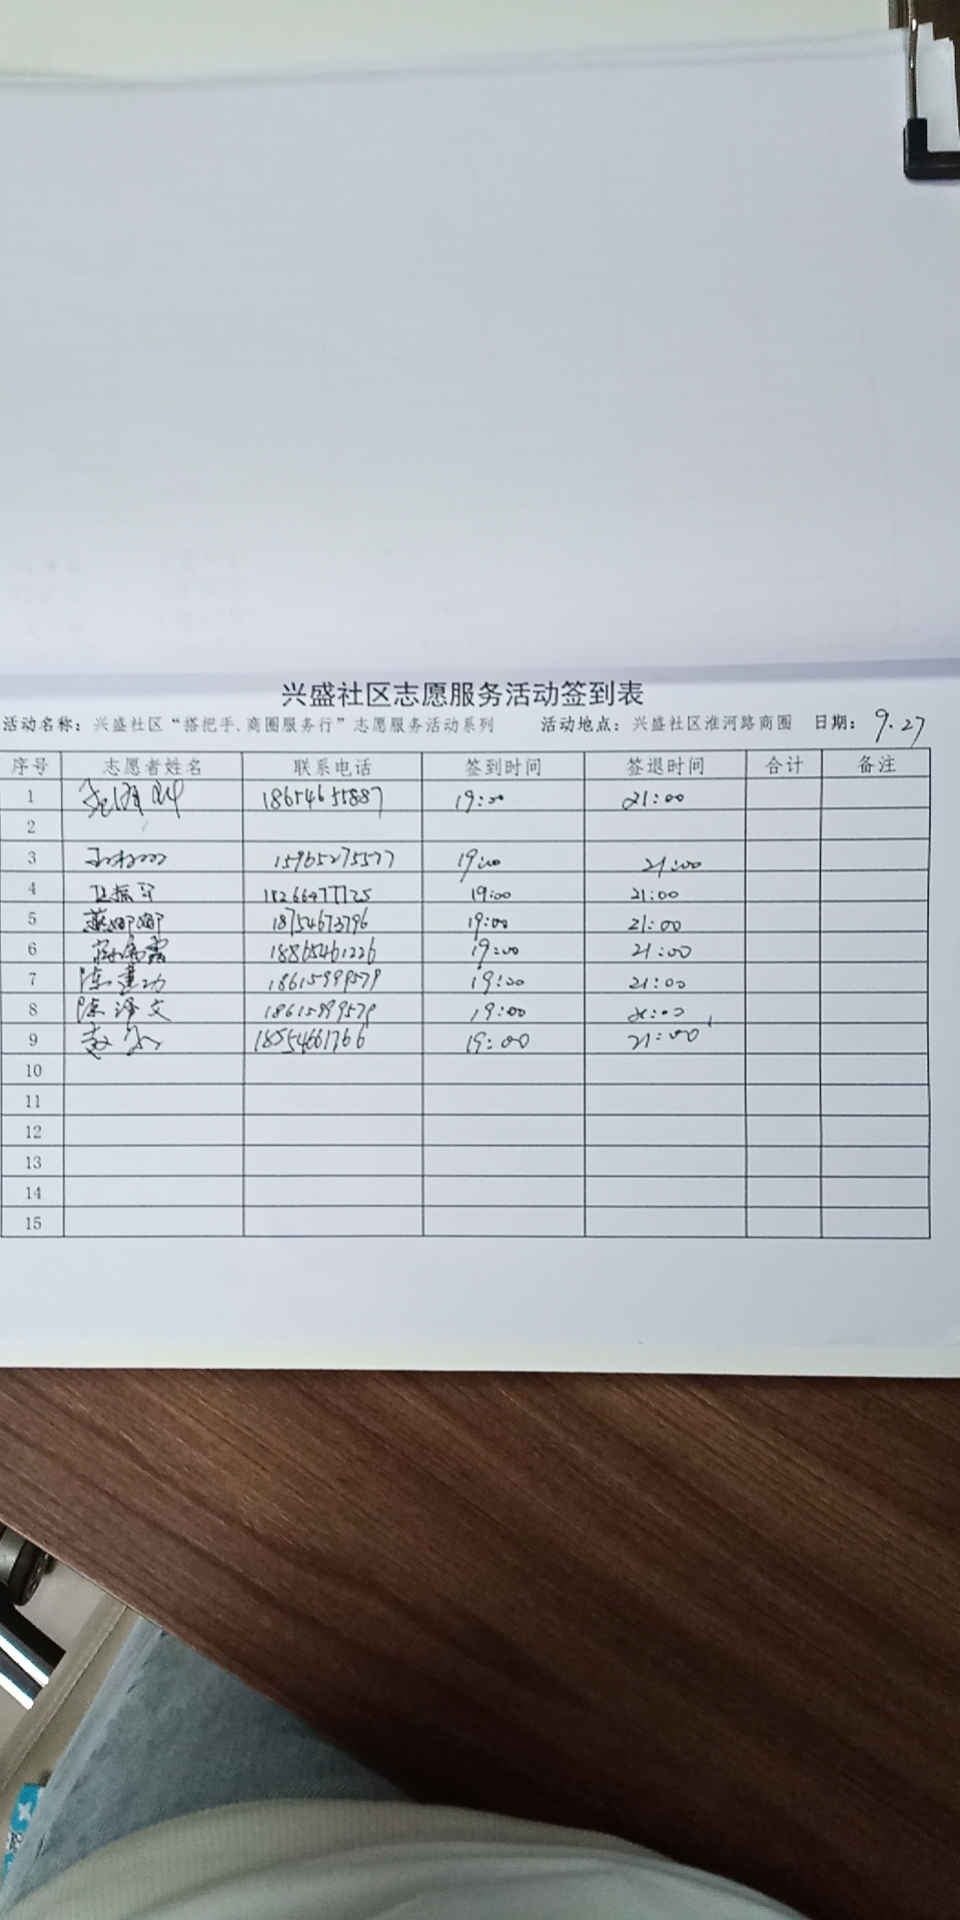 兴盛社区志愿服务活动签到表
活动名称：兴盛社区“搭把手、商圈服务行”志愿服务活动系列 活动地点：兴盛社区淮河路商圈 日期：9.27
序号 志愿者姓名 联系电话 签到时间 签退时间 合计 备注
1 18654655887 19:00 21:00
2
3 15965275577 19:00 21:00
4 18266477725 19:00 21:00
5 燕娜娜 18754673796 19:00 21:00
6 18865461226 19:00 21:00
7 陈建功 18615999579 19:00 21:00
8 陈泽文 18615999579 19:00 21:00
9 赵 18554661766 19:00 21:00
10
11
12
13
14
15